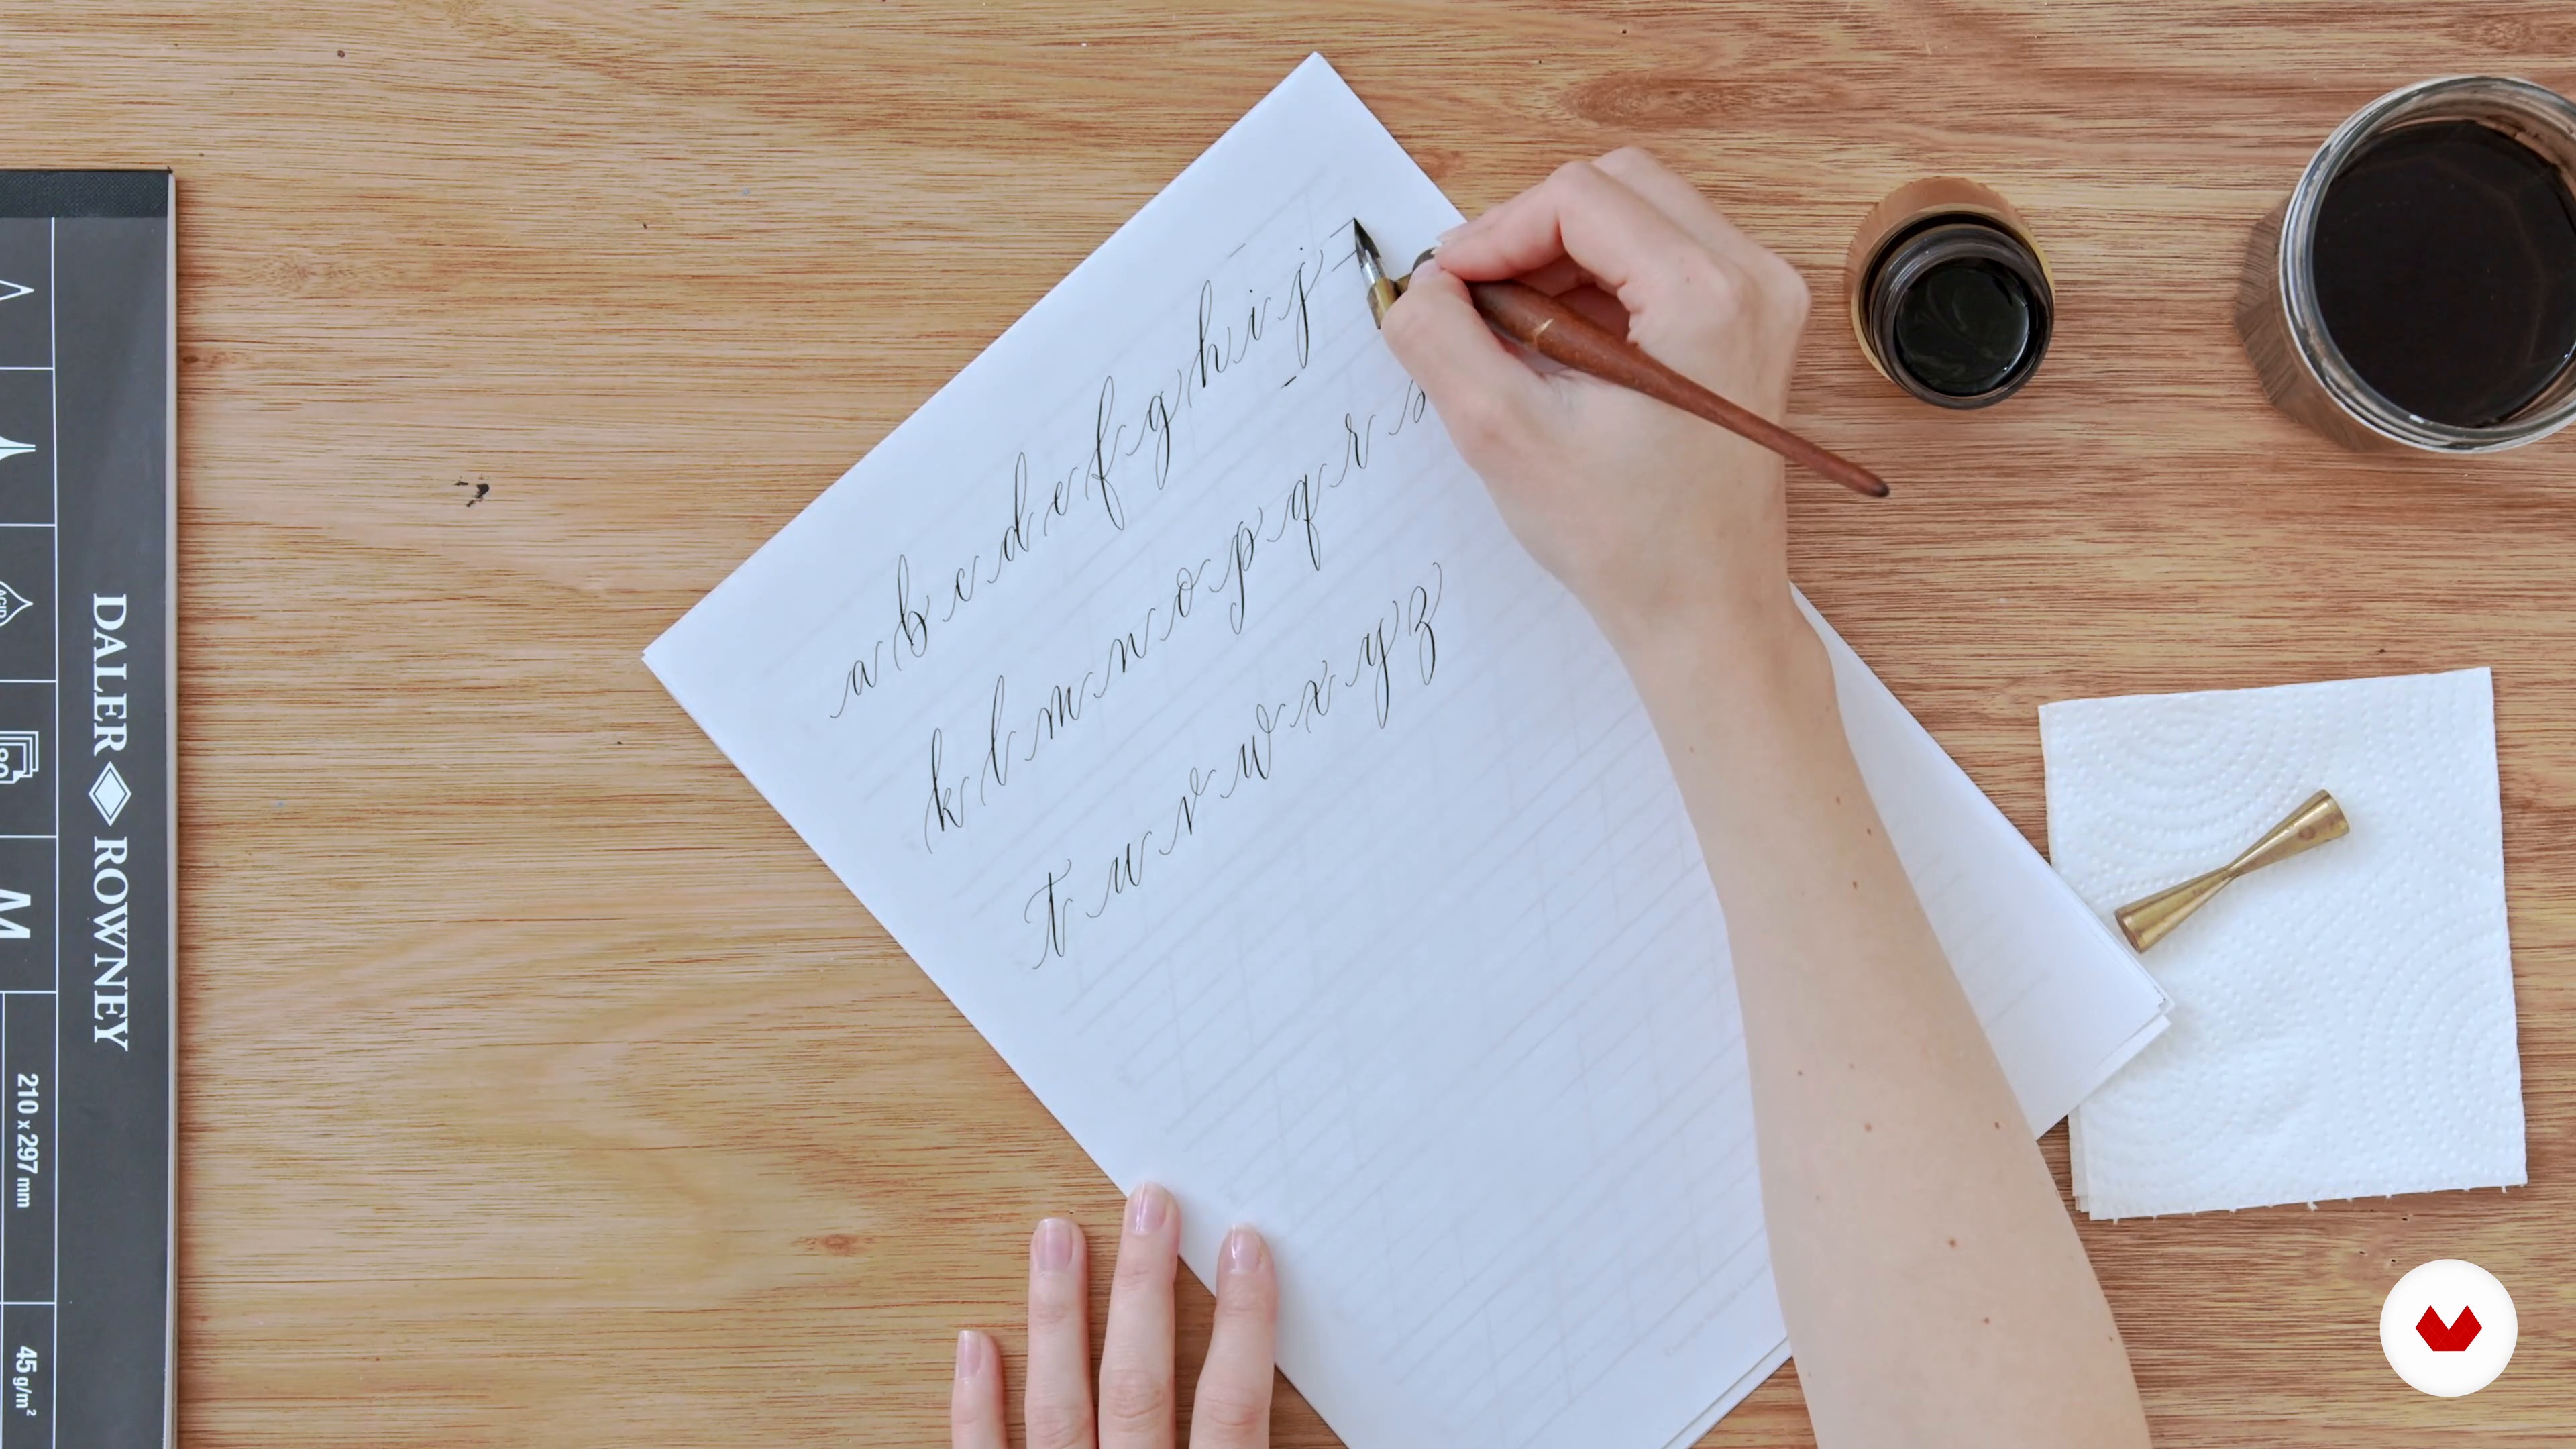 a b c d e f g h i j
k l m n o p q r s
t u v w x y z
DALER ROWNEY
210 x 297 mm
45 g/m²